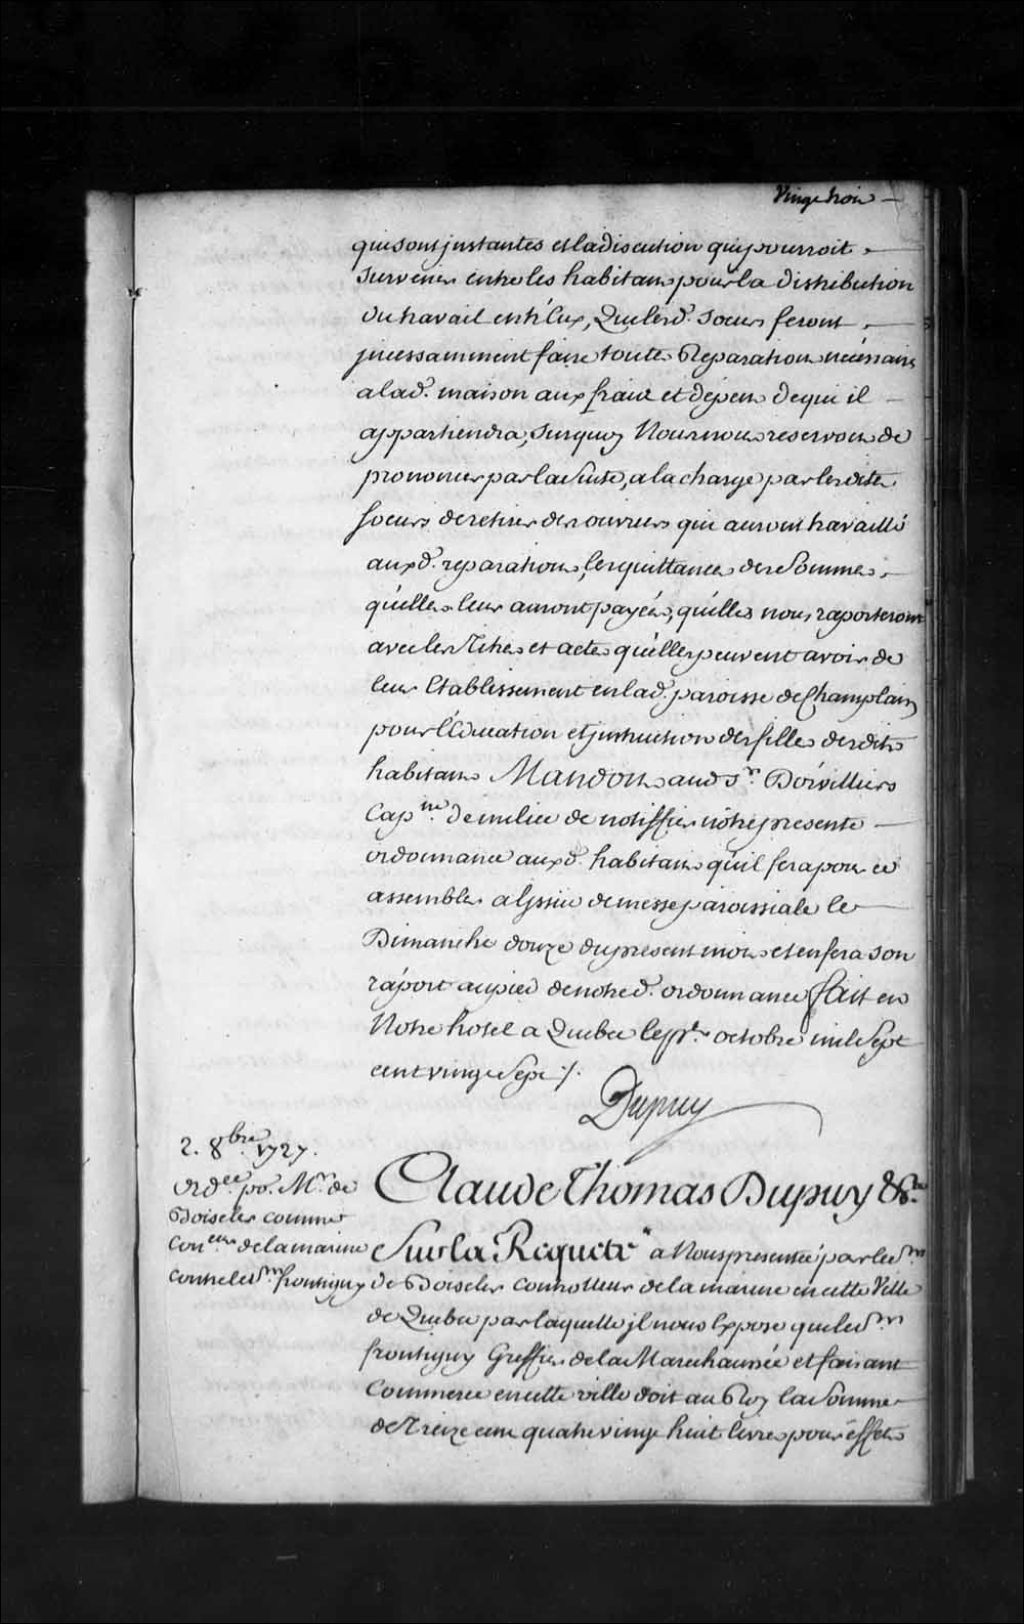 Vingt trois
qui sont jnstantes et la discution qui pourroit
survenir entre les habitans pour la distribution
du travail entr'Eux, Que lesd. soeurs feront
jncessamment faire toutes Reparations necessaires
a lad. maison aux fraix et dépens de qui il
appartiendra, surquoy Nous nous reservons de
prononcer par la Suite, a la charge par lesdites
soeurs de retirer des ouvriers qui auront travaillé
auxd. reparations, les quittances des Sommes
qu'elles leur auront payées, qu'elles nous raporteront
avec les Titres et actes qu'elles peuvent avoir de
leur Etablissement en lad. paroisse de Champlain
pour l'Education et jnstruction des filles desdits
habitans Mandons aud Sr. Dorvilliers
Cap.ne de milice de notiffier nôtre presente
ordonnance auxd. habitans qu'il fera pour ce
assembler a ljssüe de messe paroissiale le
Dimanche douze du present mois et en fera son
râport au pied de notred. ordonnance fait en
Notre hotel a Quebec le pr. octobre mil Sept
cent vingt Sept ./.
Dupuy
2. 8bre 1727.
Ord.ce po. Mr. de
Boiseler comme
Con.eur de la marine
contre led Sr frontigny
Claude Thomas Dupuy &c.
Sur la Requete a Nous presentée par le Sr.
de Boiseler controlleur de la marine en cette Ville
de Quebec par laquelle jl nous Expose que led Sr
frontigny Greffier de la Marechaussée et faisant
Commerce en cette ville doit au Roy la Somme
de Treize cent quatre vingt huit livres pour éffets